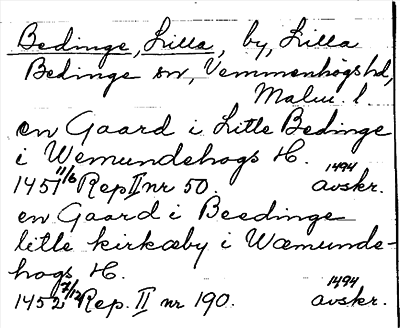 Bedinge, Lilla, by, Lilla
Bedinge sn, Vemmenhögs hd,
Malm. l.
en Gaard i Litle Bedinge
i Wemundehogs H.
1451 11/6 Rep II nr 50. 1494 avskr.
en Gaard i Beedinge
litle kirkæby i Wæmunde-
hogs H.
1452 7/12 Rep. II nr 190. 1494 avskr.